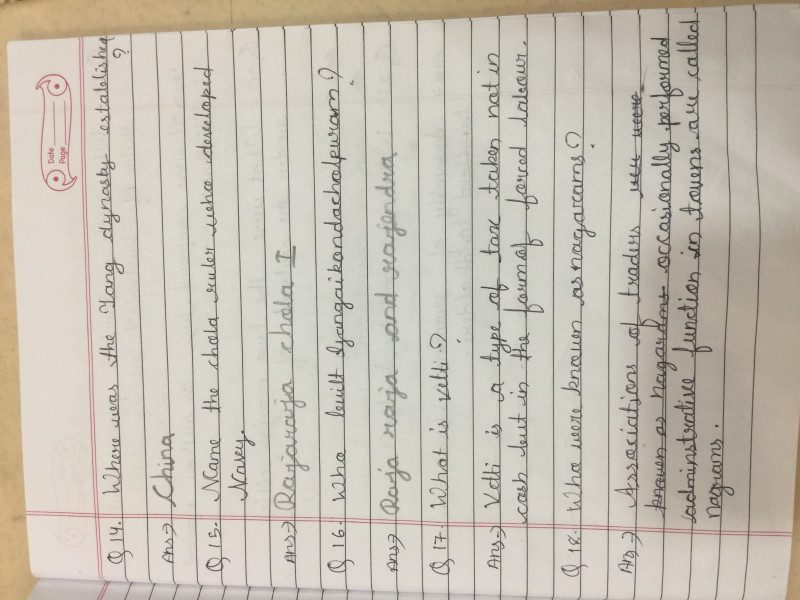 Date
Page
Q 14. Where was the Tang dynasty established
?
Ans→ China
Q 15. Name the chola ruler who developed
Navy.
Ans→ Rajaraja chola I
Q 16. Who built Gangaikondacholpuram?
Ans→ Raja raja and rajendra
Q 17. What is vetti?
Ans→ Vetti is a type of tax taken not in
cash but in the form of forced labour.
Q 18. Who were known as nagarams?
Ans→ Associations of traders were
known as nagarams occasionally performed
adminstrative function in towns are called
nagrams.